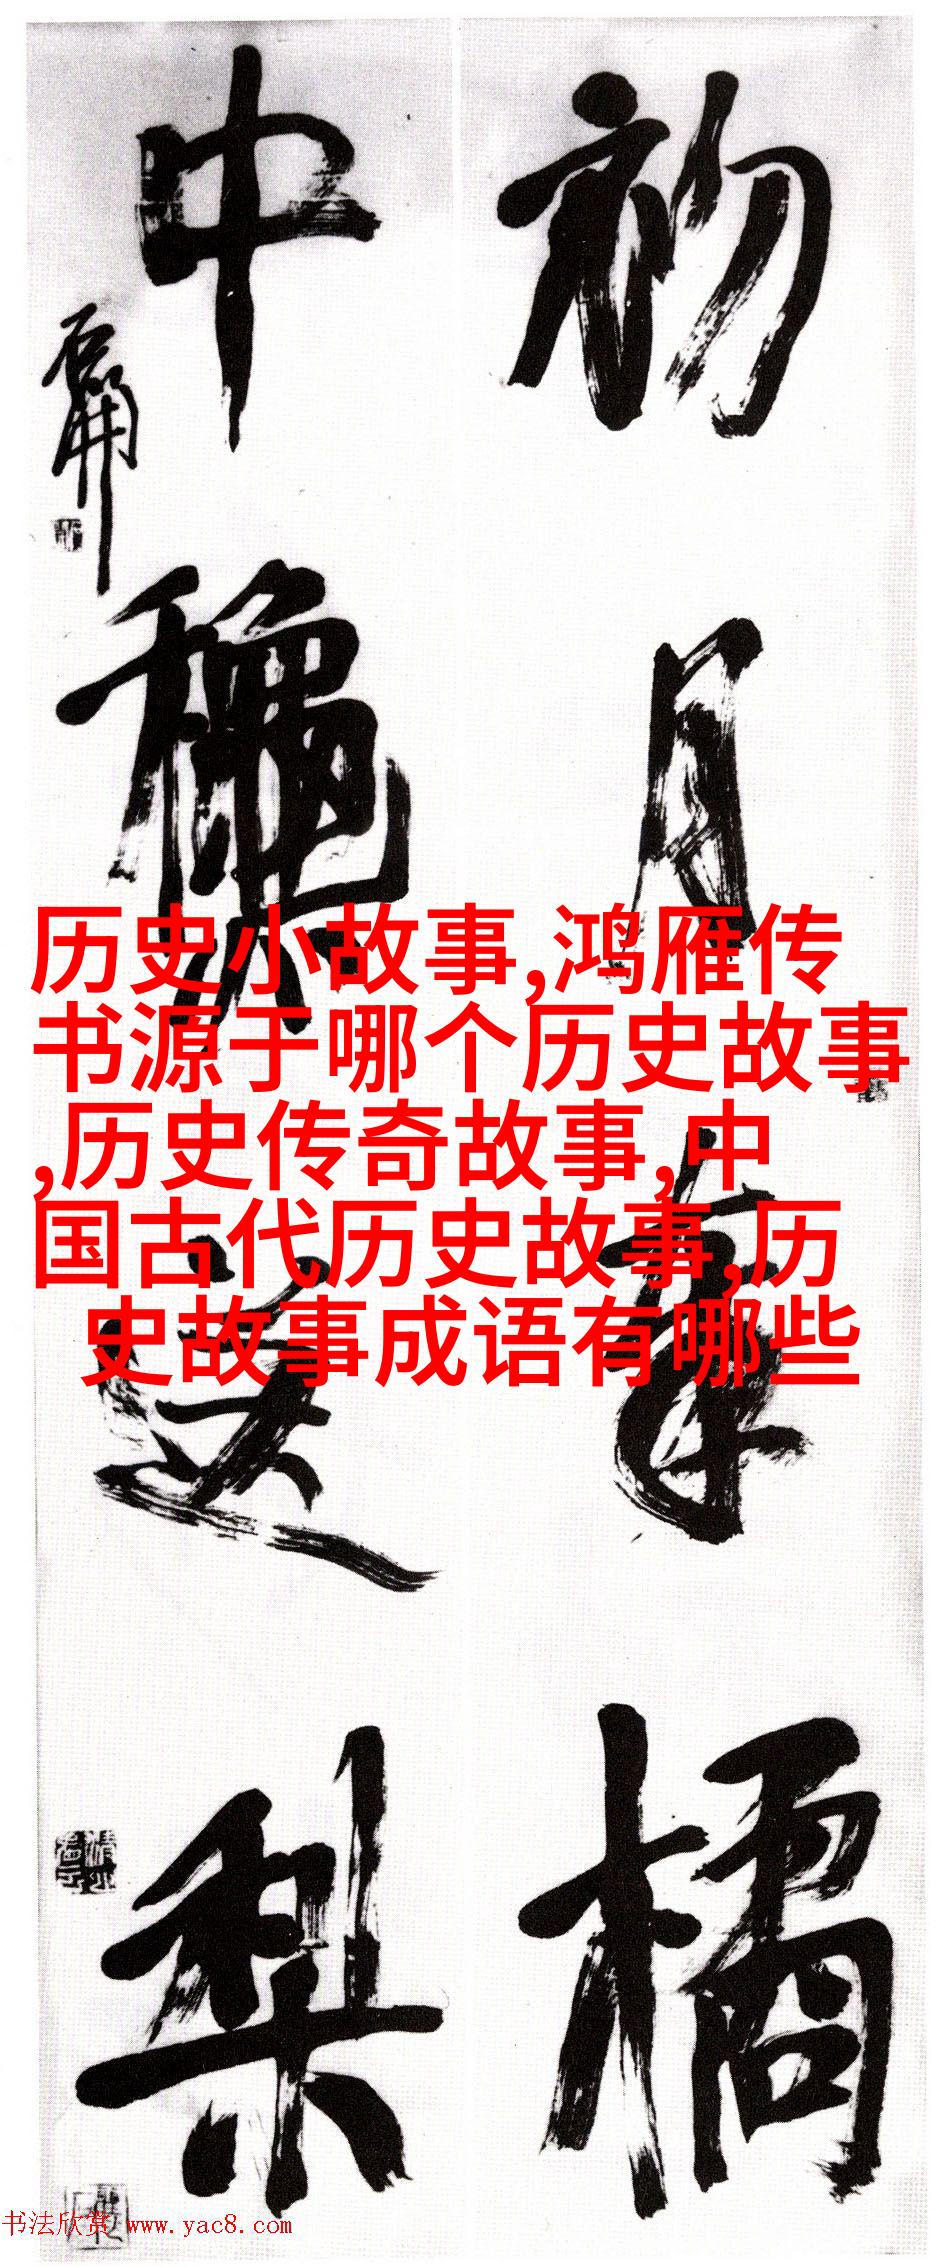 初月橘
中送梨
历史小故事,鸿雁传
书源于哪个历史故事
,历史传奇故事,中
国古代历史故事,历
史故事成语有哪些
书法欣赏 www.yac8.com